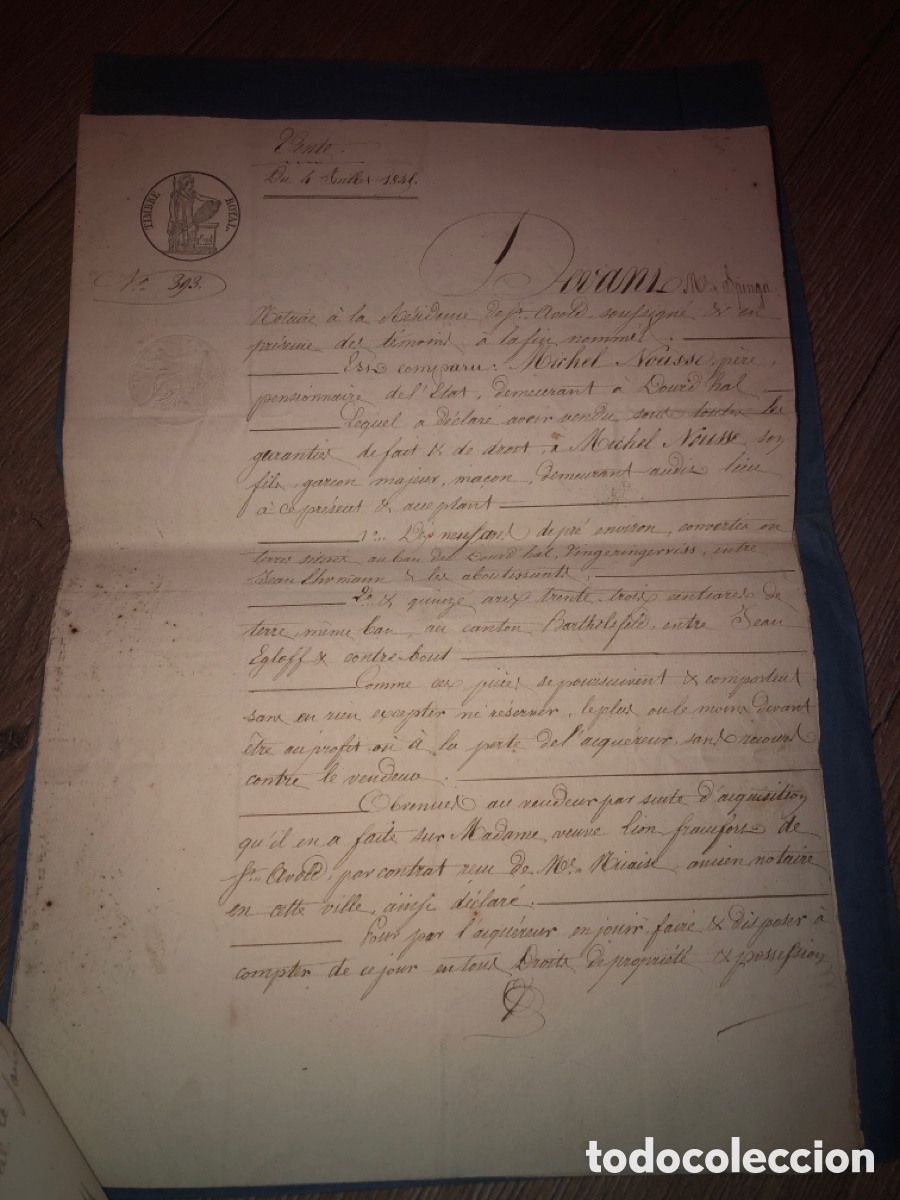 Vente
Du 4 Juillet 1841.
TIMBRE ROYAL.
No. 393.
Devant Me. Spinga
Notaire à la Résidence de St. Avold, soussigné & en
présence des témoins à la fin nommés.
Est comparu: Michel Nousse, père,
pensionnaire de l'Etat, demeurant à Dourd'hal
Lequel a déclaré avoir vendu sous toutes les
garanties de fait & de droit, à Michel Nousse, son
fils, garçon majeur, maçon, demeurant audit lieu
à ce présent & acceptant
1o. Dix neuf ares de pré environ, convertis en
terre, sises au ban de Dourd'hal, entre
Jean & les aboutissants.
2o. & quinze ares trente trois centiares de
terre, même ban, au canton Barthelsfeld, entre Jean
Egloff & contre bout
Comme ces pièces se poursuivent & comportent
sans en rien excepter ni réserver, le plus ou le moins devant
être au profit ou à la perte de l'acquéreur, sans recours
contre le vendeur.
Obvenues au vendeur par suite d'acquisition
qu'il en a faite sur Madame veuve Lion francfort de
St. Avold, par contrat reçu de Me. ancien notaire
en cette ville, ainsi déclaré.
Pour par l'acquéreur en jouir, faire & disposer à
compter de ce jour en tous Droits de propriété & possession
todocoleccion